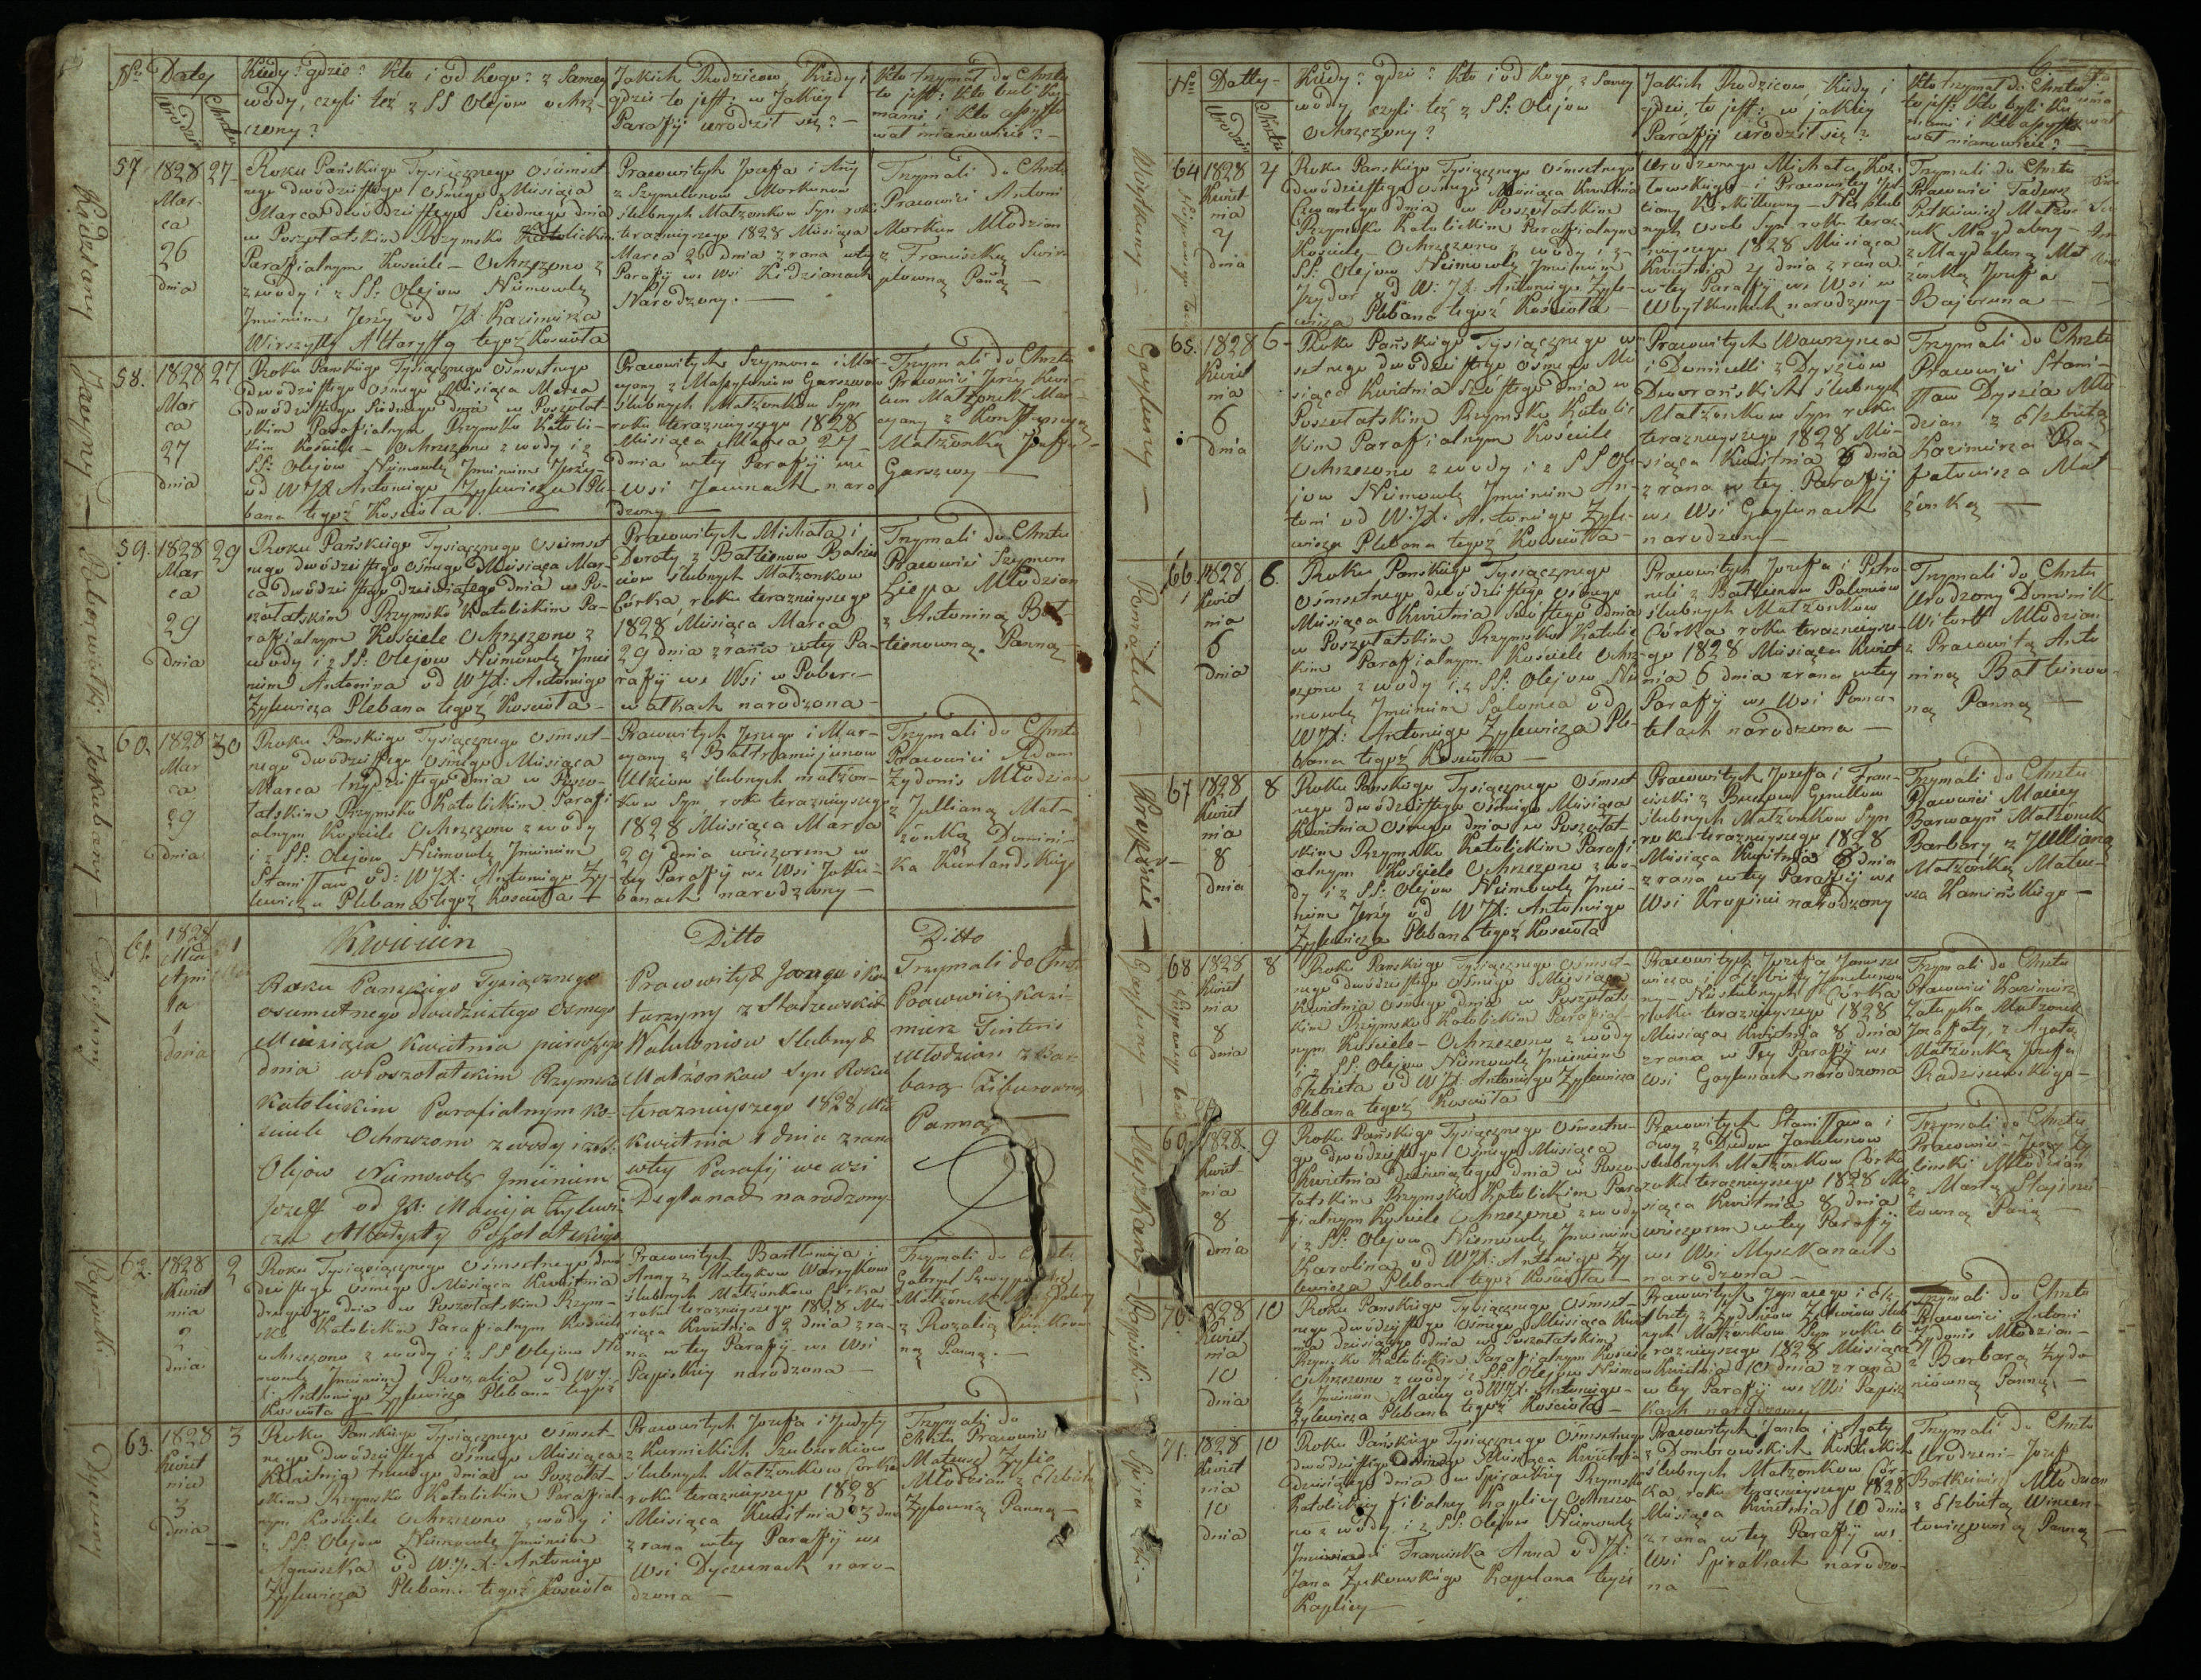 Nº Daty
Urodzin
Chrztu
Kiedy? gdzie? Kto i od Kogo? z Samey
wody, czyli też z SS Olejow ochrz-
czony?
Jakich Rodzicow, Kiedy i
gdzie to jest: w Jakiey
Parafij urodził się? —
Kto trzymał do Chrztu
to jest: Kto byli Ku-
mami i Kto assysto
wał mianowicie? —
57
1828
Mar-
ca
26
dnia
27
Roku Pańskiego Tysiącznego Ośmset
nego dwódziestego Osmego Miesiąca
Marca dwódziestego Siodmego dnia
w Poszołatskim Rzymsko Katolickim
Parafialnym Kościele — Ochrzczono z
z wody i z SS: Olejow Niemowlę
Jmieniem Jerzy od JX: Kazimierza
Wirszyłły Altarysty tegoż Kościoła
Pracowitych Jozefa i Anny
z Szymelunow Morkunow
Ślubnych Małżonkow Syn roku
teraznieyszego 1828 Miesiąca
Marca 26 dnia z rana w tey
Parafij we Wsi Kidzianach
Narodzony. —
Trzymali do Chrztu
Pracowici Antoni
Morkun Młodzian
z Franciszką Swir-
płowną Panną —
58.
1828
Mar
ca
27
dnia
27
Roku Pańskiego Tysiącznego Ośmsetnego
dwódziestego Osmego Miesiąca Marca
dwódziestego Siodmego dnia w Poszołat-
skim Parafialnym Rzymsko Katolic-
kim Kościele — Ochrzczono z wody i z
SS: Olejow Niemowlę Jmieniem Jerzy-
od WJX Antoniego Zylewicza Ple-
bana tegoż Kościoła. —
Pracowitych Szymona i Mar-
cyany z Garszwow
Ślubnych Małżonkow Syn
roku teraznieyszego 1828
Miesiąca Marca 27
dnia w tey Parafij we
Wsi Jawnach naro
dzony —
Trzymali do Chrztu
Pracowici Jerzy
Małżonek Mar-
cyany z
Małżonką Jozefa
Garszwy —
59.
1828
Mar
ca
29
dnia
29
Roku Pańskiego Tysiącznego Ośmset
nego dwódziestego Osmego Miesiąca Mar-
ca dwódziestego dziewiątego dnia w Po-
szołatskim Rzymsko Katolickim Pa-
rafialnym Kościele Ochrzczono z
wody i z SS: Olejow Niemowlę Jmie
niem Antonina od WJX: Antoniego
Zylewicza Plebana tegoż Kościoła-
Pracowitych Michała i
Doroty z Batlenow
Ślubnych Małżonkow
Córka, roku teraznieyszego
1828 Miesiąca Marca
29 dnia z rana w tey Pa-
rafij we Wsi w Pober-
wałkach narodzona-
Trzymali do Chrztu
Pracowici Szymon
Liepa Młodzian
z Antoniną Bat-
lenowną. Panną
60.
1828
Mar
ca
29
dnia
30
Roku Pańskiego Tysiącznego Ośmset-
nego dwódziestego Osmego Miesiąca
Marca trzydziestego dnia w Poszo-
łatskim Rzymsko Katolickim Parafi
alnym Kościele Ochrzczono z wody
i z SS: Olejow Niemowlę Jmieniem
Stanisław od: WJX: Antoniego Zy-
lewicza Plebana tegoż Kościoła —
Pracowitych Jerzego i Mar-
cyany z
Ślubnych małżon-
kow Syn, roku teraznieyszego
1828 Miesiąca Marca
29 dnia wieczorem w
tey Parafij we Wsi Jaku-
banach narodzony —
Trzymali do Chrztu
Pracowici Adam
Zydonis Młodzian
z Jullianą Mał-
żonką Domini-
ka Kurlandskiego
61.
1828
1
dnia
1
Kwiecien
Ditto
Ditto
Roku Panskiego Tysiącznego
osmsetnego dwudziestego osmego
Miesiąca Kwietnia pierwszego
dnia w Poszołatskim Rzymsko
Katolickim Parafialnym Ko-
sciele Ochrzczono z wody i z SS:
Olejow Niemowlę Jmieniem
Jozeff od JX: Macieja Zylewi-
cza Altarysty Poszołatskiego
Pracowitych Jerzego i Ka
tarzyny z
Slubnych
Małżonkow Syn Roku
teraznieyszego 1828 Mca
Kwietnia 1 dnia z rana
w tey Parafij we wsi
Deglanach narodzony-
Trzymali do Chrztu
Pracowici Kazi-
mierz
Młodzian z Bar-
barą
Panną
62.
1828
Kwiet
nia
2
dnia
2
Roku Tysiącznego Ośmsetnego dwó
dziestego Osmego Miesiąca Kwietnia
drugiego dnia w Poszołatskim Rzym-
sko Katolickim Parafialnym Kościele
ochrzczono z wody i z SS Olejow Nie
mowlę Jmieniem Rozalia od WJ
X Antoniego Zylewicza Plebana tegoż
Kościoła —
Pracowitych Bartłomieja i
Anny z
Ślubnych Małżonkow Córka
roku teraznieyszego 1828 Mie-
siąca Kwietnia 2 dnia z ra-
na w tey Parafij we Wsi
narodzona —
Trzymali do Chrztu
Gabryel
Małżonek
z Rozalią
ną Panną. —
63.
1828
Kwiet
nia
3
dnia
3
Roku Pańskiego Tysiącznego Ośmset-
nego dwódziestego osmego Miesiąca
Kwietnia trzeciego dnia w Poszołat-
skim Rzymsko Katolickim Parafial-
nym Kościele Ochrzczono z wody i
z SS: Olejow Niemowlę Jmieniem
Agnieszka od W:JX: Antoniego
Zylewicza Plebana tegoż Kościoła
Pracowitych Jozefa i Judyty
z Kurnickich Szuburkiow
Ślubnych Małżonkow Córka
roku teraznieyszego 1828
Miesiąca Kwietnia 3 dnia
z rana w tey Parafij we
Wsi Dyczunach naro-
dzona —
Trzymali do
Chrztu Pracowici
Mateusz
Młodzian z Elżbietą
Panną —
Kidziany
Jawny —
Poberwałki
Jakubany —
Deglany
Dyczuny
6
Nº Datty-
Urodzin
Chrztu
Kiedy? gdzie? Kto i od Kogo, z Samey
wody czyli też z SS: Olejow
Ochrzczony?
Jakich Rodzicow, Kiedy i
gdzie, to jest: w jakiey
Parafij urodził się?
Kto trzymał do Chrztu
to jest: Kto byli Ku
mami i Kto assysto
wał mianowicie? —
64
1828
Kwiet
nia
4
dnia
4
Roku Pańskiego Tysiącznego Ośmsetnego
dwódziestego Osmego Miesiąca Kwietnia
Czwartego dnia w Poszołatskim
Rzymsko Katolickim Parafialnym
Kościele — Ochrzczono z wody i z-
SS: Olejow Niemowlę Jmieniem
Jzydor od W: JX: Antoniego Zyle-
wicza Plebana tegoż Kościoła —
Urodzonego Michała Koz-
łowskiego i Pracowitey Ju-
cianny — Nieślub
nych osob Syn roku teraz-
nieyszego 1828 Miesiąca
Kwietnia 4 dnia z rana
w tey Parafij we Wsi w
narodzony-
Trzymali do Chrztu
Pracowici Tadeusz
Petkiewicz Małżo-
nek Magdaleny —
z Magdaleną Mał
żonką Jozefa
Bajoruna —
65.
1828
Kwiet
nia
6
dnia
6-
Roku Pańskiego Tysiącznego w
setnego dwódziestego osmego Mie
siąca Kwietnia Szóstego dnia w
Poszołatskim Rzymsko Katolic
kim Parafialnym Kościele
Ochrzczono z wody i z SS Ole
jow Niemowlę Jmieniem An-
toni od W:JX: Antoniego Zyle-
wicza Plebana tegoż Kościoła —
Pracowitych Wawrzynca
i Domicelli z Dysziow
Dworańskich Ślubnych
Małżonkow Syn roku
teraznieyszego 1828 Mie-
siąca Kwietnia 6 dnia
z rana w tey Parafij
we Wsi Gaylunach
narodzony —
Trzymali do Chrztu
Pracowici Stani-
sław Dyszia Mło
dzian z Elżbietą
Kazimierza Ra-
fałowicza Mał-
żonką —
66.
1828
Kwiet
nia
6
dnia
6.
Roku Pańskiego Tysiącznego
Ośmsetnego dwódziestego osmego
Miesiąca Kwietnia Szóstego dnia
w Poszołatskim Rzymsko Katolic
kim Parafialnym Kościele Ochrz-
czono z wody i z SS: Olejow Nie
mowlę Jmieniem Salomea od
WJX: Antoniego Zylewicza Ple-
bana tegoż Kościoła —
Pracowitych Jozefa i Petro
neli z Batlenow
Ślubnych Małżonkow
Córka roku teraznieysze-
go 1828 Miesiąca Kwiet
nia 6 dnia z rana w tey
Parafij we Wsi Poma-
telach narodzona —
Trzymali do Chrztu
Urodzony Dominik
Witort Młodzian
z Pracowitą Anto
niną Batlenow-
ną Panną —
67
1828
Kwiet
nia
8
dnia
8
Roku Pańskiego Tysiącznego Ośmset
nego dwódziestego Osmego Miesiąca
Kwietnia Osmego dnia w Poszołat-
skim Rzymsko Katolickim Parafi
alnym Kościele Ochrzczono z wo-
dy i z SS: Olejow Niemowlę Jmie-
niem Jerzy od WJX: Antoniego
Zylewicza Plebana tegoż Kościoła
Pracowitych Jozefa i Fran-
ciszki z
Ślubnych Małżonkow Syn
roku teraznieyszego 1828
Miesiąca Kwietnia 8 dnia
z rana w tey Parafij we
Wsi Kropini narodzony
Trzymali do Chrztu
Pracowici Maciey
Małżonek
Barbary z Jullianą
Małżonką Mateu-
sza Kamińskiego —
68
1828
Kwiet
nia
8
dnia
8
Roku Pańskiego Tysiącznego Ośmset-
nego dwódziestego Osmego Miesiąca
Kwietnia osmego dnia w Poszołats-
kim Rzymsko Katolickim Parafial-
nym Kościele — Ochrzczono z wody
i z SS: Olejow Niemowlę Jmieniem
Elżbieta od WJX Antoniego Zylewicza
Plebana tegoż Kościoła —
Pracowitych Jozefa Janusze
wicza i Elżbiety
ny — Nieślubnych Córka
roku teraznieyszego 1828
Miesiąca Kwietnia 8 dnia
z rana w Tey Parafij we
Wsi Gaylunach narodzona
Trzymali do Chrztu
Pracowici Kazimierz
Małżonek
Jozafaty, z Agatą
Małżonką Jozefa
Radziszewskiego —
69.
1828.
Kwiet
nia
8
dnia
9
Roku Pańskiego Tysiącznego Ośmsetne-
go dwódziestego Osmego Miesiąca
Kwietnia dziewiątego dnia w Poszo-
łatskim Rzymsko Katolickim Para
fialnym Kościele Ochrzczono z wody
i z SS: Olejow Niemowlę Jmieniem
Karolina od WJX: Antoniego Zy-
lewicza Plebana tegoż Kościoła —
Pracowitych Stanisława i
Ewy z
Ślubnych Małżonkow Córka
roku teraznieyszego 1828 Mie
siąca Kwietnia 8 dnia
wieczorem w tey Parafij
we Wsi Myszkanach
narodzona —
Trzymali do Chrztu
Pracowici Jerzy
Młodzian
z Martą
Panną —
70.
1828
Kwiet
nia
10
dnia
10
Roku Pańskiego Tysiącznego Ośmset-
nego dwódziestego Osmego Miesiąca Kwiet
nia dziesiątego dnia w Poszołatskim
Rzymsko Katolickim Parafialnym Kościele
Ochrzczono z wody i z SS: Olejow Niemow
lę Jmieniem Maciey od WJX: Antoniego-
Zylewicza Plebana tegoż Kościoła —
Pracowitych Jgnacego i Elż-
biety z Ślub-
nych Małżonkow Syn roku te
raznieyszego 1828 Miesiąca
Kwietnia 10 dnia z rana
w tey Parafij we Wsi Papisz
kach narodzony —
Trzymali do Chrztu
Pracowici Antoni
Zydonis Młodzian —
z Barbarą Zydo
niówną Panną —
71.
1828
Kwiet
nia
10
dnia
10
Roku Pańskiego Tysiącznego Ośmsetnego
dwódziestego Osmego Miesiąca Kwietnia
dziesiątego dnia w Spirackiey Rzymsko
Katolickiey filialney Kaplicy Ochrzczo-
no z wody i z SS: Olejow Niemowlę
Franciszka Anna od JX:
Jana Zukowskiego Kapelana teyże
Kaplicy —
Pracowitych Jana i Agaty
z Dombrowskich
Ślubnych Małżonkow Cór-
ka roku teraznieyszego 1828
Miesiąca Kwietnia 10 dnia
z rana w tey Parafij we
Wsi Spirakach narodzo-
na —
Trzymali do Chrztu
Urodzeni Jozef
Bortkiewicz Młodzian
z Elżbietą Wincen-
towiczowną Panną
Gayluny —
Pomatele —
Kropinie —
Gayluny —
Myszkany —
Papiszki —